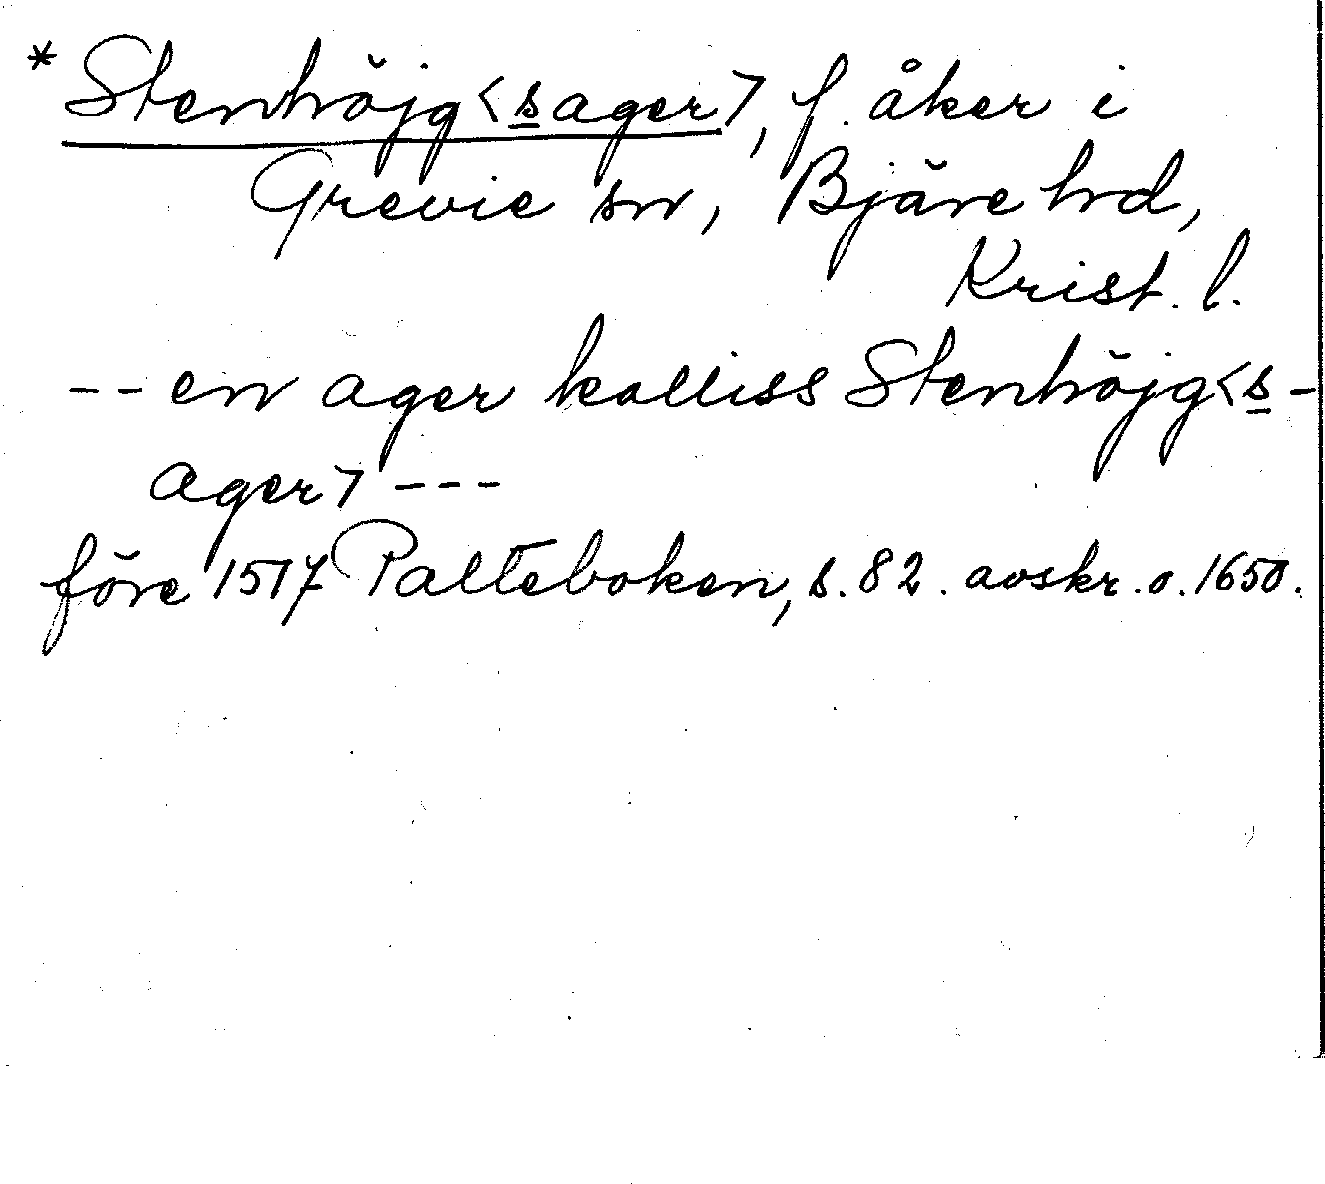 * Stenhöjg<sager>, f. åker i
Grevie sn, Bjäre hd,
Krist. l.
-- en ager kalliss Stenhöjg<s-
ager> ---
före 1517 Palteboken, s. 82. avskr. o. 1650.